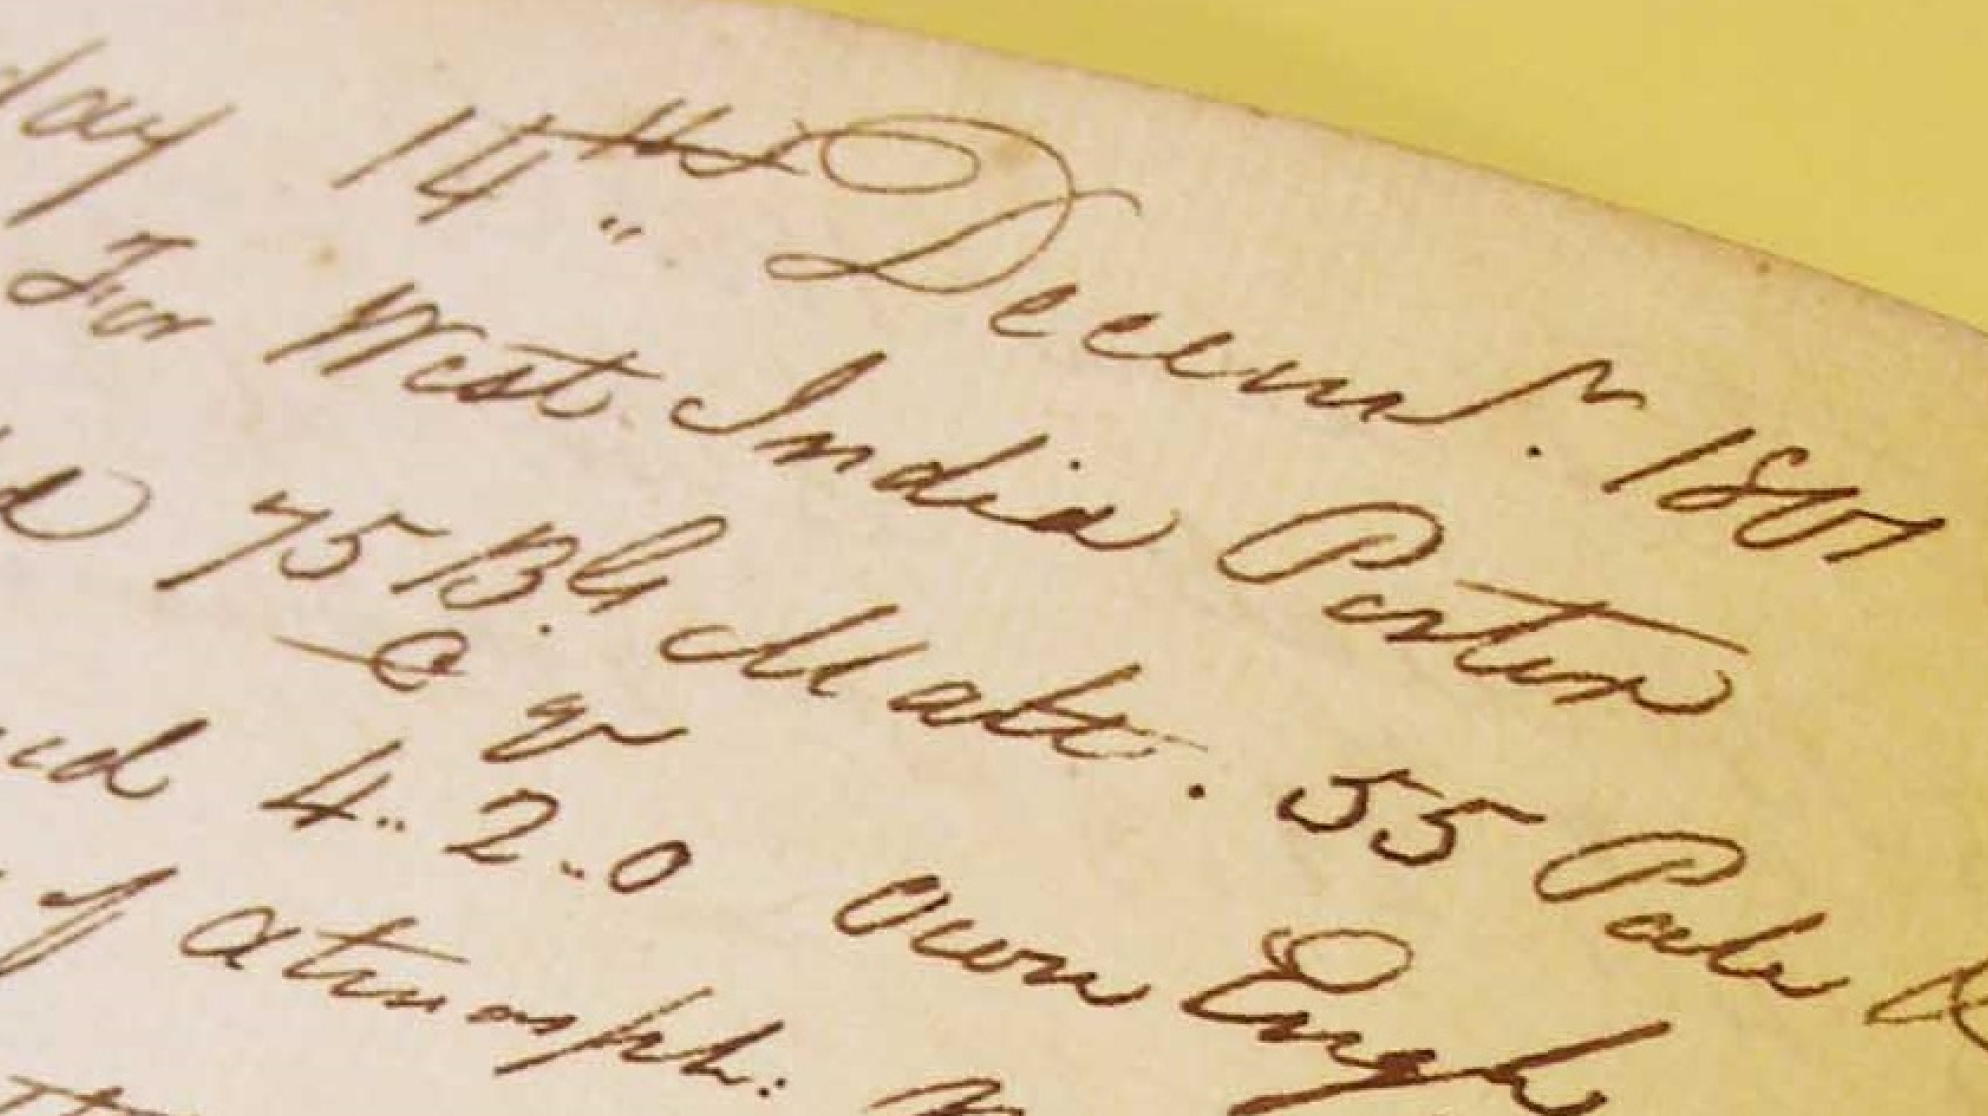 day 14th Decemr. 1801
For West India Porter
75 Bl Malt. 55 Pale
C qr
4.. 2.. 0 Own Engh
of atmosph: